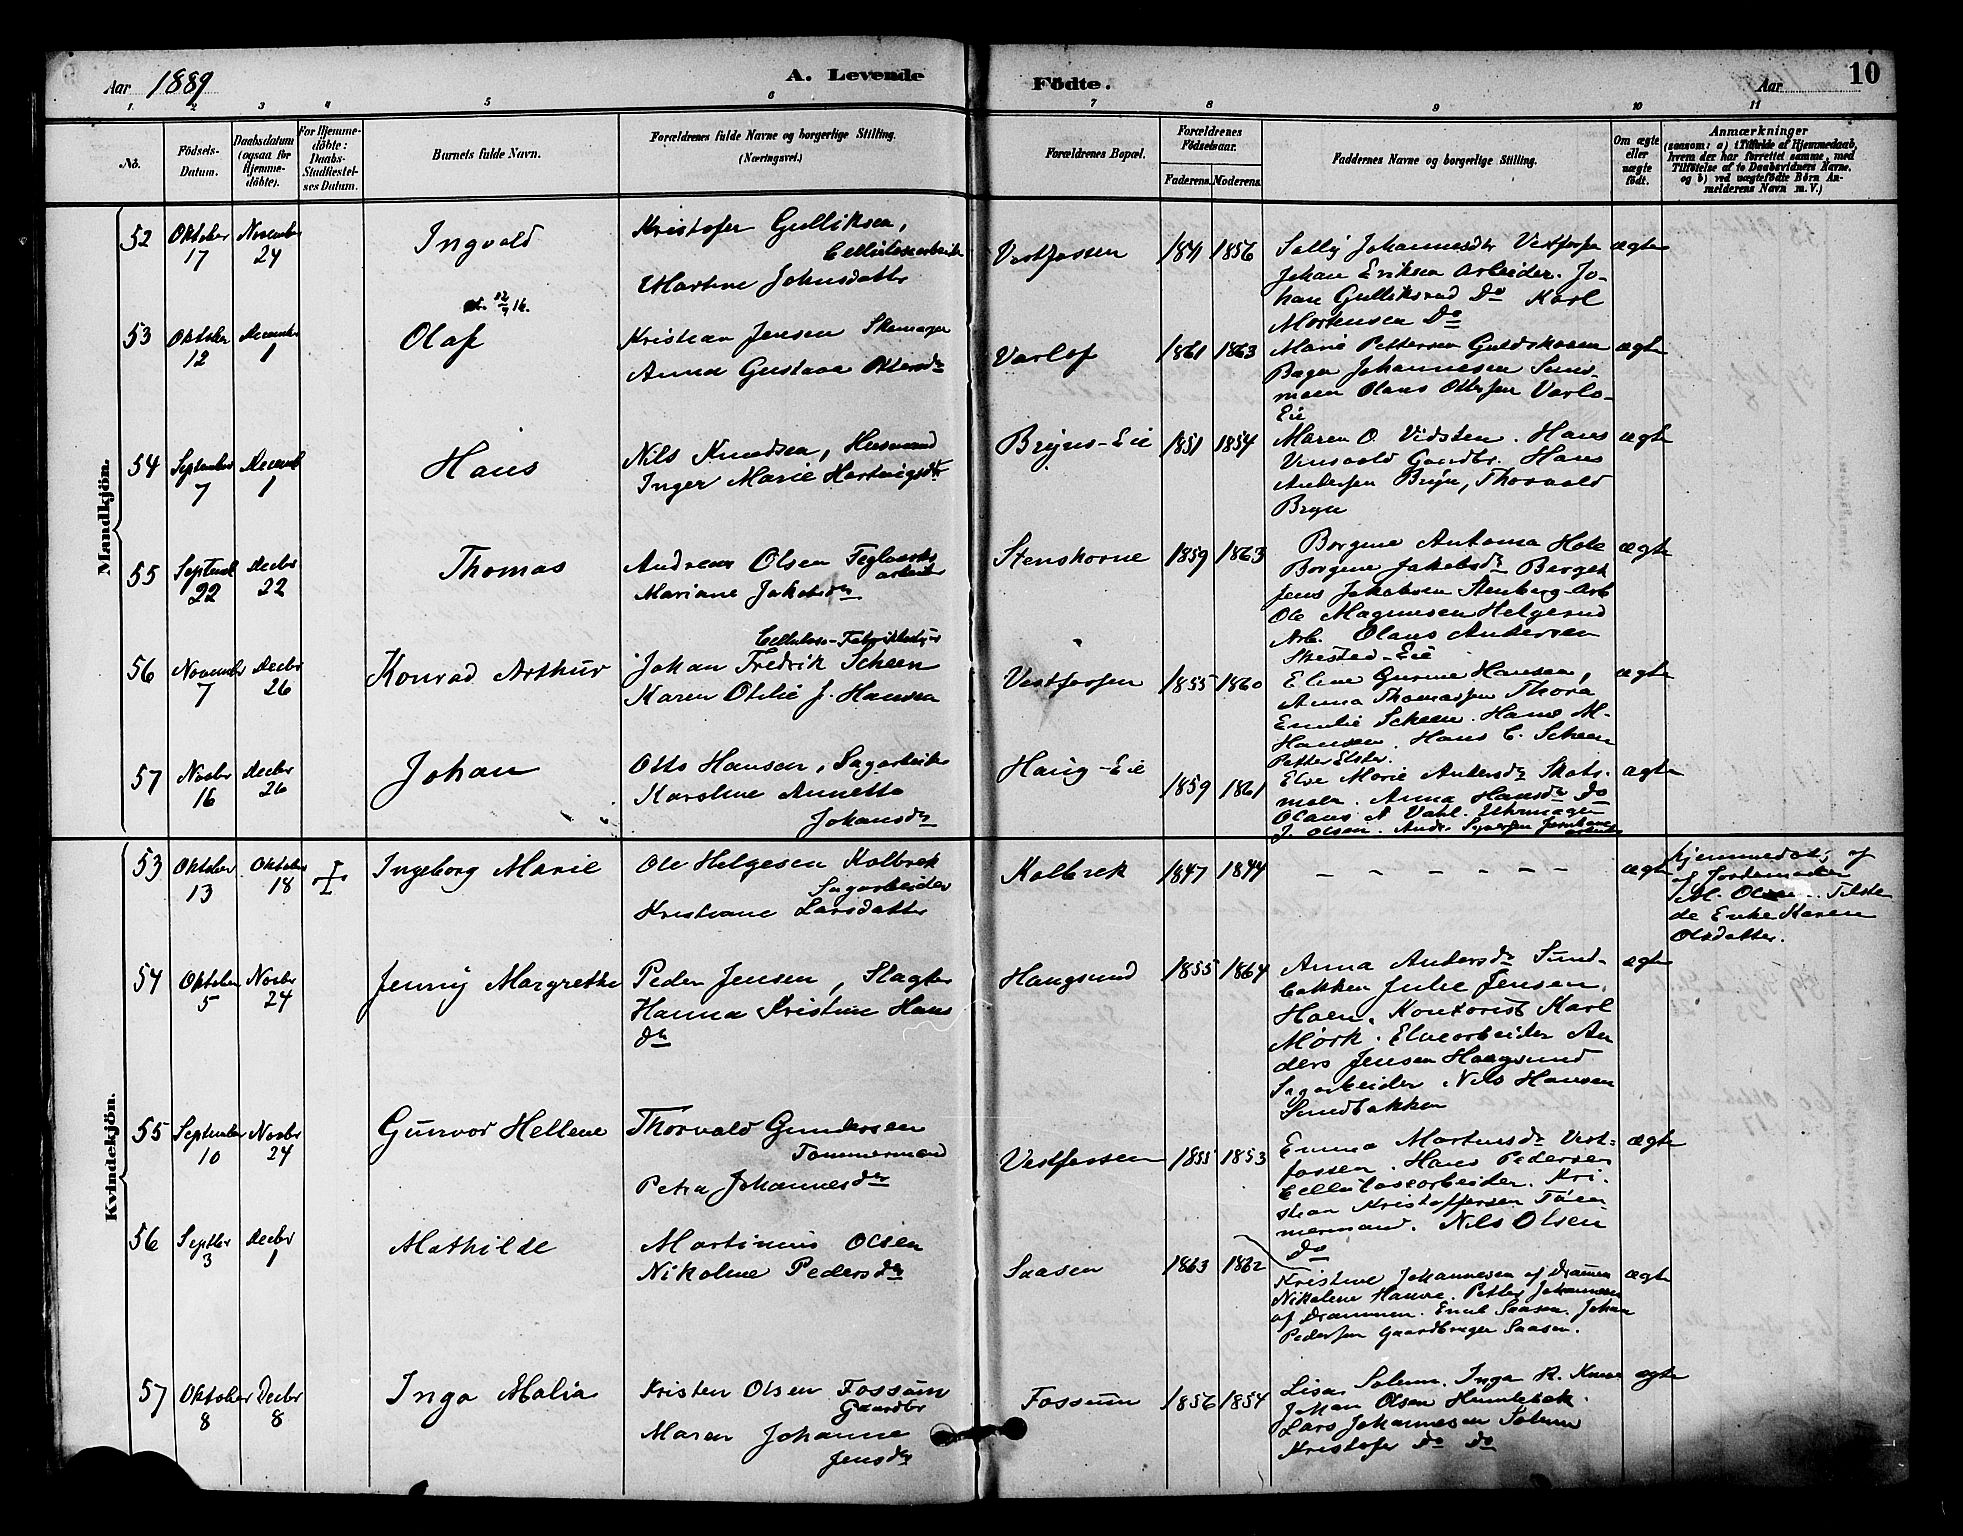 Aar 1889
A. Levende Födte.
Aar 10
1. 2 3 4 5 6 7 8 9 10 11
No.
Födsels-Datum.
Daabsdatum (ogsaa for Hjemme-döbte).
For Hjemme-döbte: Daabs-Stadfæstel-ses Datum.
Barnets fulde Navn.
Forældrenes fulde Navne og borgerlige Stilling.
(Næringsvei.)
Forældrenes Bopæl.
Forældrenes Födselsaar.
Faderens. Moderens.
Faddernes Navne og borgerlige Stilling.
Om ægte eller uægte födt.
Anmærkninger
(saasom: a) i Tilfælde af Hjemmedaab,
hvem der har forrettet samme, med
Tilföielse af to Daabsvidners Navne,
og b) ved uægtefödte Börn An-
melderens Navn m. V.)
Mandkjön.
52 Oktober 17 November 24 Ingvald
Kristofer Gulliksen,
Cellulosearbeider
Martine Johnsdatter
Vestfossen 1856
Johannesdtr Vestfossen ægte
Johan Eriksen Arbeider. Jo-
han Gulliksrud Do Karl
Mortensen Do
53 Oktober 12 December 1 Olaf
Kristian Jensen Skomager
Anna Gustava Ottersdr
Varlof 1861 1863
Marie Pettersen Guldskoven ægte
Johannesen
Olaus Ottersen Varlo-
Eie
54 September 7 December 1 Hans
Nils Knudsen, Husmand
Inger Marie Hartvigsdtr
Bryns-Eie 1851 1854
Maren O. Vidsten. Hans ægte
Gaardbr. Hans
Andersen Bryn, Thorvald
Bryn
55 Septemb 22 Decbr 22 Thomas
Andreas Olsen Teglværks
arbeider
Mariane Jakobsdr
Stenskorne 1859 1863
Borgine Antonia Hole ægte
Borgine Jakobsdr Berget
Jens Jakobsen Stenberg-Arb
Ole Magnusen Helgerud
Arb. Olaus Andersen
Skjested-Eie
56 November 7 Decbr 26 Konrad Arthur
Johan Fredrik Scheen
Karen Otilie J. Hansen
Vestfossen 1855 1860
Eline Gurine Hansen, ægte
Anna Thomassen Thora
Emilie Scheen. Hans M.
Hansen. Hans C. Scheen
Petter Elster.
57 Novbr 16 Decbr 26 Johan
Otto Hansen, Sagarbeider
Karoline Annette
Johansdr
Haug-Eie 1859 1861
Else Marie Andersdr Skots- ægte
moen. Anna Hansdr Do
Olaus A Vahl.
J. Olsen. Andr. Syversen
Kvindekjön.
53 Oktober 13 Oktober 18 Ingeborg Marie
Ole Helgesen Kolbrek
Sagarbeider
Kristiane Larsdatter
Kolbrek 1847 1844 – – – – – – ægte
Hjemmedøbt af
Jordemoder
M. Olsen. Tilste
de Enke Karen
Olsdatter.
54 Oktober 5 Novbr 24 Jenny Margrethe
Peder Jensen, Slagter
Hanna Kristine Hans
dr
Haugsund 1855 1864
Anna Andersdr Sund- ægte
bakken Julie Jensen.
Hoen. Kontorist Karl
Mørk. Elvearbeider An
ders Jensen Haugsund
Sagarbeider. Nils Hansen
Sundbakken
55 September 10 Novbr 24 Gunvor Hellene
Thorvald Gundersen
Tømmermand
Petra Johannesdr
Vestfossen 1855 1853
Emma Martinsdr Vest- ægte
fossen. Hans Pedersen
Cellulosearbeider. Kri-
stian Kristoffersen Tøm-
mermand. Nils Olsen
Do
56 Septbr 3 Decbr 1 Mathilde
Martinius Olsen
Nikoline Pedersdr
Saasen 1863 1862
Kristine Johannesen af Drammen ægte
Nikoline Hauve. Petter Johannesen
af Drammen. Emil Saasen. Johan
Pedersen Gaardbruger Saasen.
57 Oktober 8 Decbr 8 Inga Malia
Kristen Olsen Fossum
Gaardbr
Maren Johanne
Jensdr
Fossum 1856 1854
Lisa Solum. Inga R. ægte
Johan Olsen Humlebæk.
Lars Johannesen Solum
Kristofer Do Do